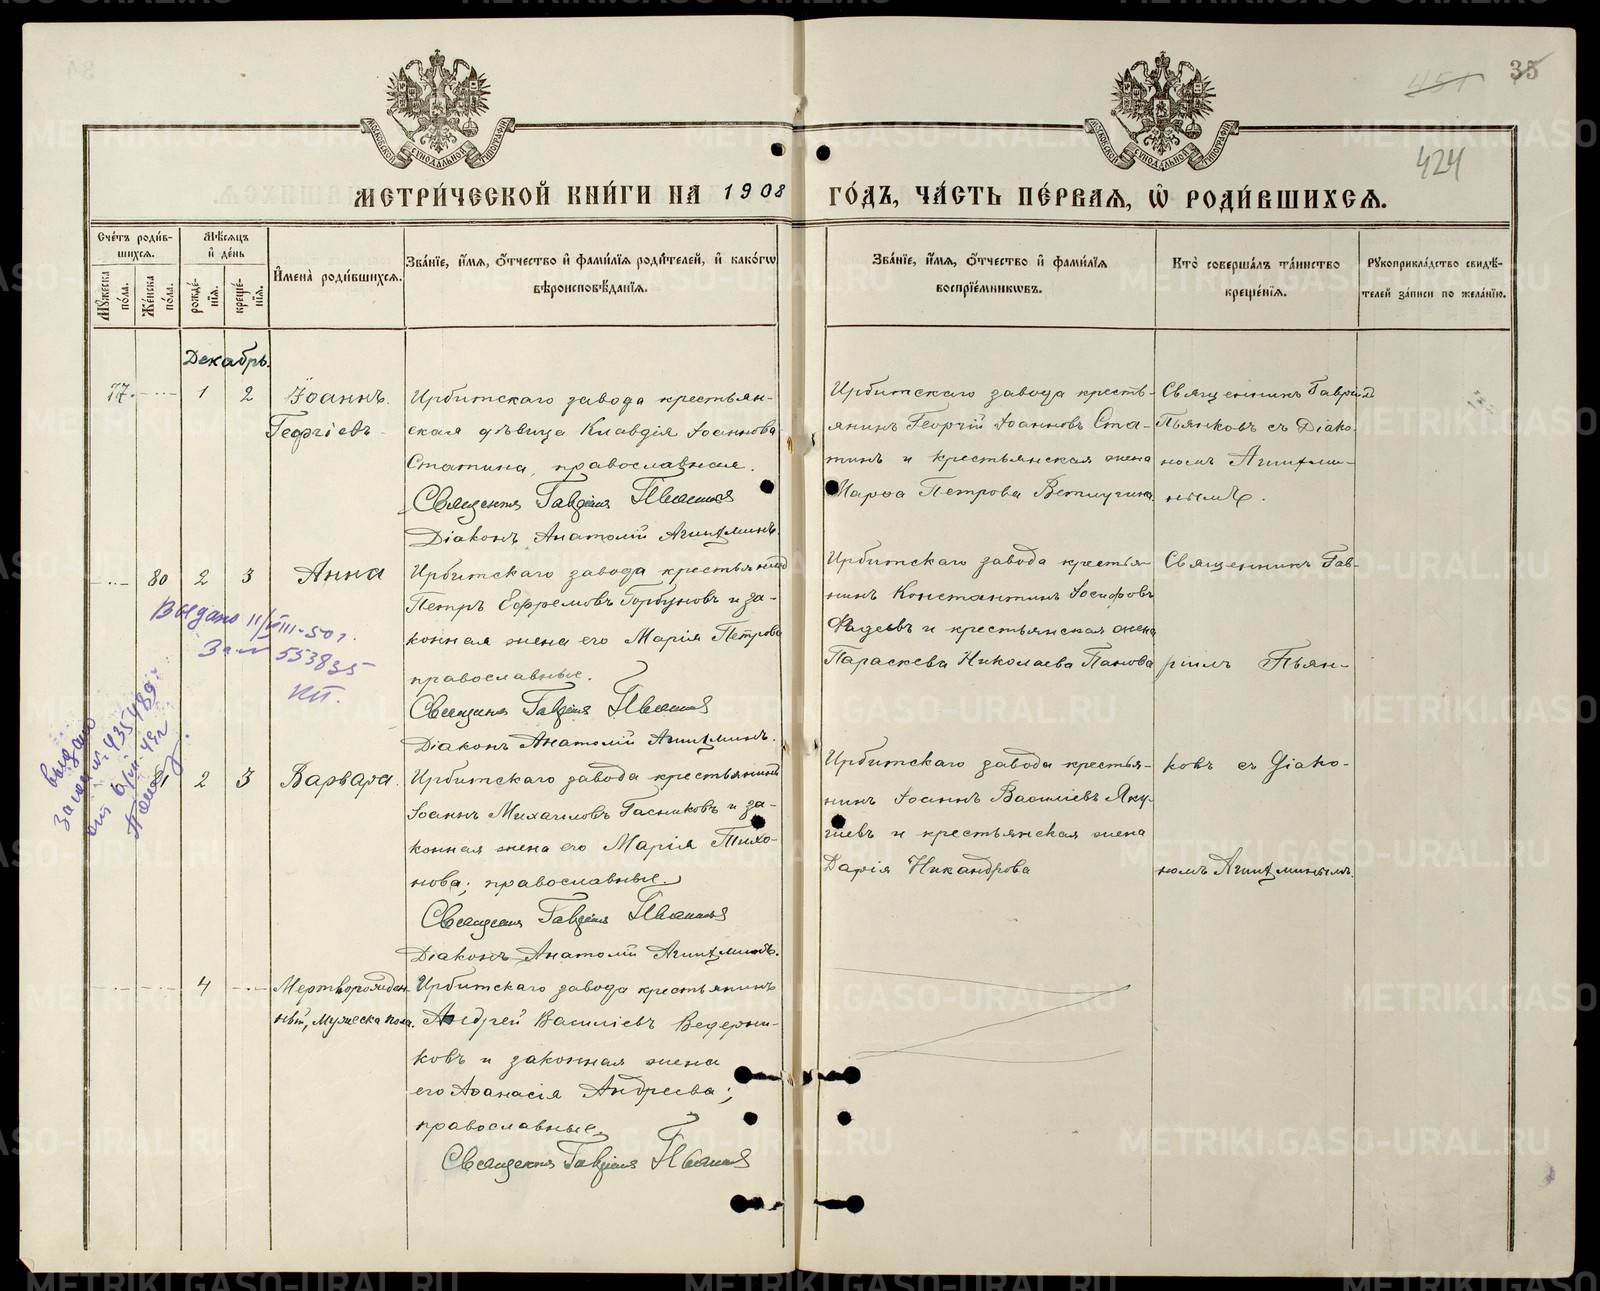 35
424
МЕТРИ́ЧЕСКОЙ КНИ́ГИ НА 1908 ГО́ДЪ, ЧА́СТЬ ПЕ́РВАЯ, Ѡ҆ РОДИ́ВШИХСѦ.
Сче́тъ роди́в-
шихсѧ.
Мꙋ́жеска по́ла.
Же́нска по́ла.
Мѣ́сѧцъ
и҆ де́нь
рожде́-нїѧ.
креще́-нїѧ.
И҆мена̀ роди́вшихсѧ.
Зва́нїе, и҆́мѧ, ѻ҆́тчество и҆ фами́лїѧ роди́телей, и҆ како́гѡ
вѣроисповѣ́данїѧ.
Зва́нїе, и҆́мѧ, ѻ҆́тчество и҆ фами́лїѧ
воспрїе́мникѡвъ.
Кто̀ соверша́лъ та́инство
креще́нїѧ.
Рꙋкоприкла́дство свидѣ́-
телей за́писи по жела́нїю.
Декабрь.
77. 1 2 Іоаннъ.
Георгіевъ
Ирбитскаго завода крестьян-
ская дѣвица Клавдія Іоаннова
Статина, православная.
Священникъ Гавріилъ Пьянковъ
Діаконъ Анатолій
Ирбитскаго завода кресть-
янинъ Георгій Іоанновъ Ста-
тинъ и крестьянская жена
Марѳа Петрова Ветлугина
Священникъ Гавріилъ
Пьянковъ съ Діако-
номъ
80 2 3 Анна
Ирбитскаго завода крестьянинъ
Петръ Ефремовъ Горбуновъ и за-
конная жена его Марія Петрова
православные.
Священникъ Гавріилъ Пьянковъ
Діаконъ Анатолій
Ирбитскаго завода крестья-
нинъ Константинъ Іосифовъ
Фадеевъ и крестьянская жена
Параскева Николаева Панова
Священникъ Гав-
ріилъ Пьян-
Выдано 11/VIII-50 г.
За № 553835
выдано
За № 435489
81 2 3 Варвара.
Ирбитскаго завода крестьянинъ
Іоаннъ Михаиловъ Гасниковъ и за-
конная жена его Марія Тихо-
нова; православные.
Священникъ Гавріилъ Пьянковъ
Діаконъ Анатолій
Ирбитскаго завода крестья-
нинъ Іоаннъ Василіевъ Яку-
шевъ и крестьянская жена
Дарія Никандрова
ковъ съ Діако-
номъ
4 Мертворожден-
ный, мужеска пола.
Ирбитскаго завода крестьянинъ
Андрей Василіевъ Ведерни-
ковъ и законная жена
его Аѳанасія Андреева;
православные.
Священникъ Гавріилъ Пьянковъ